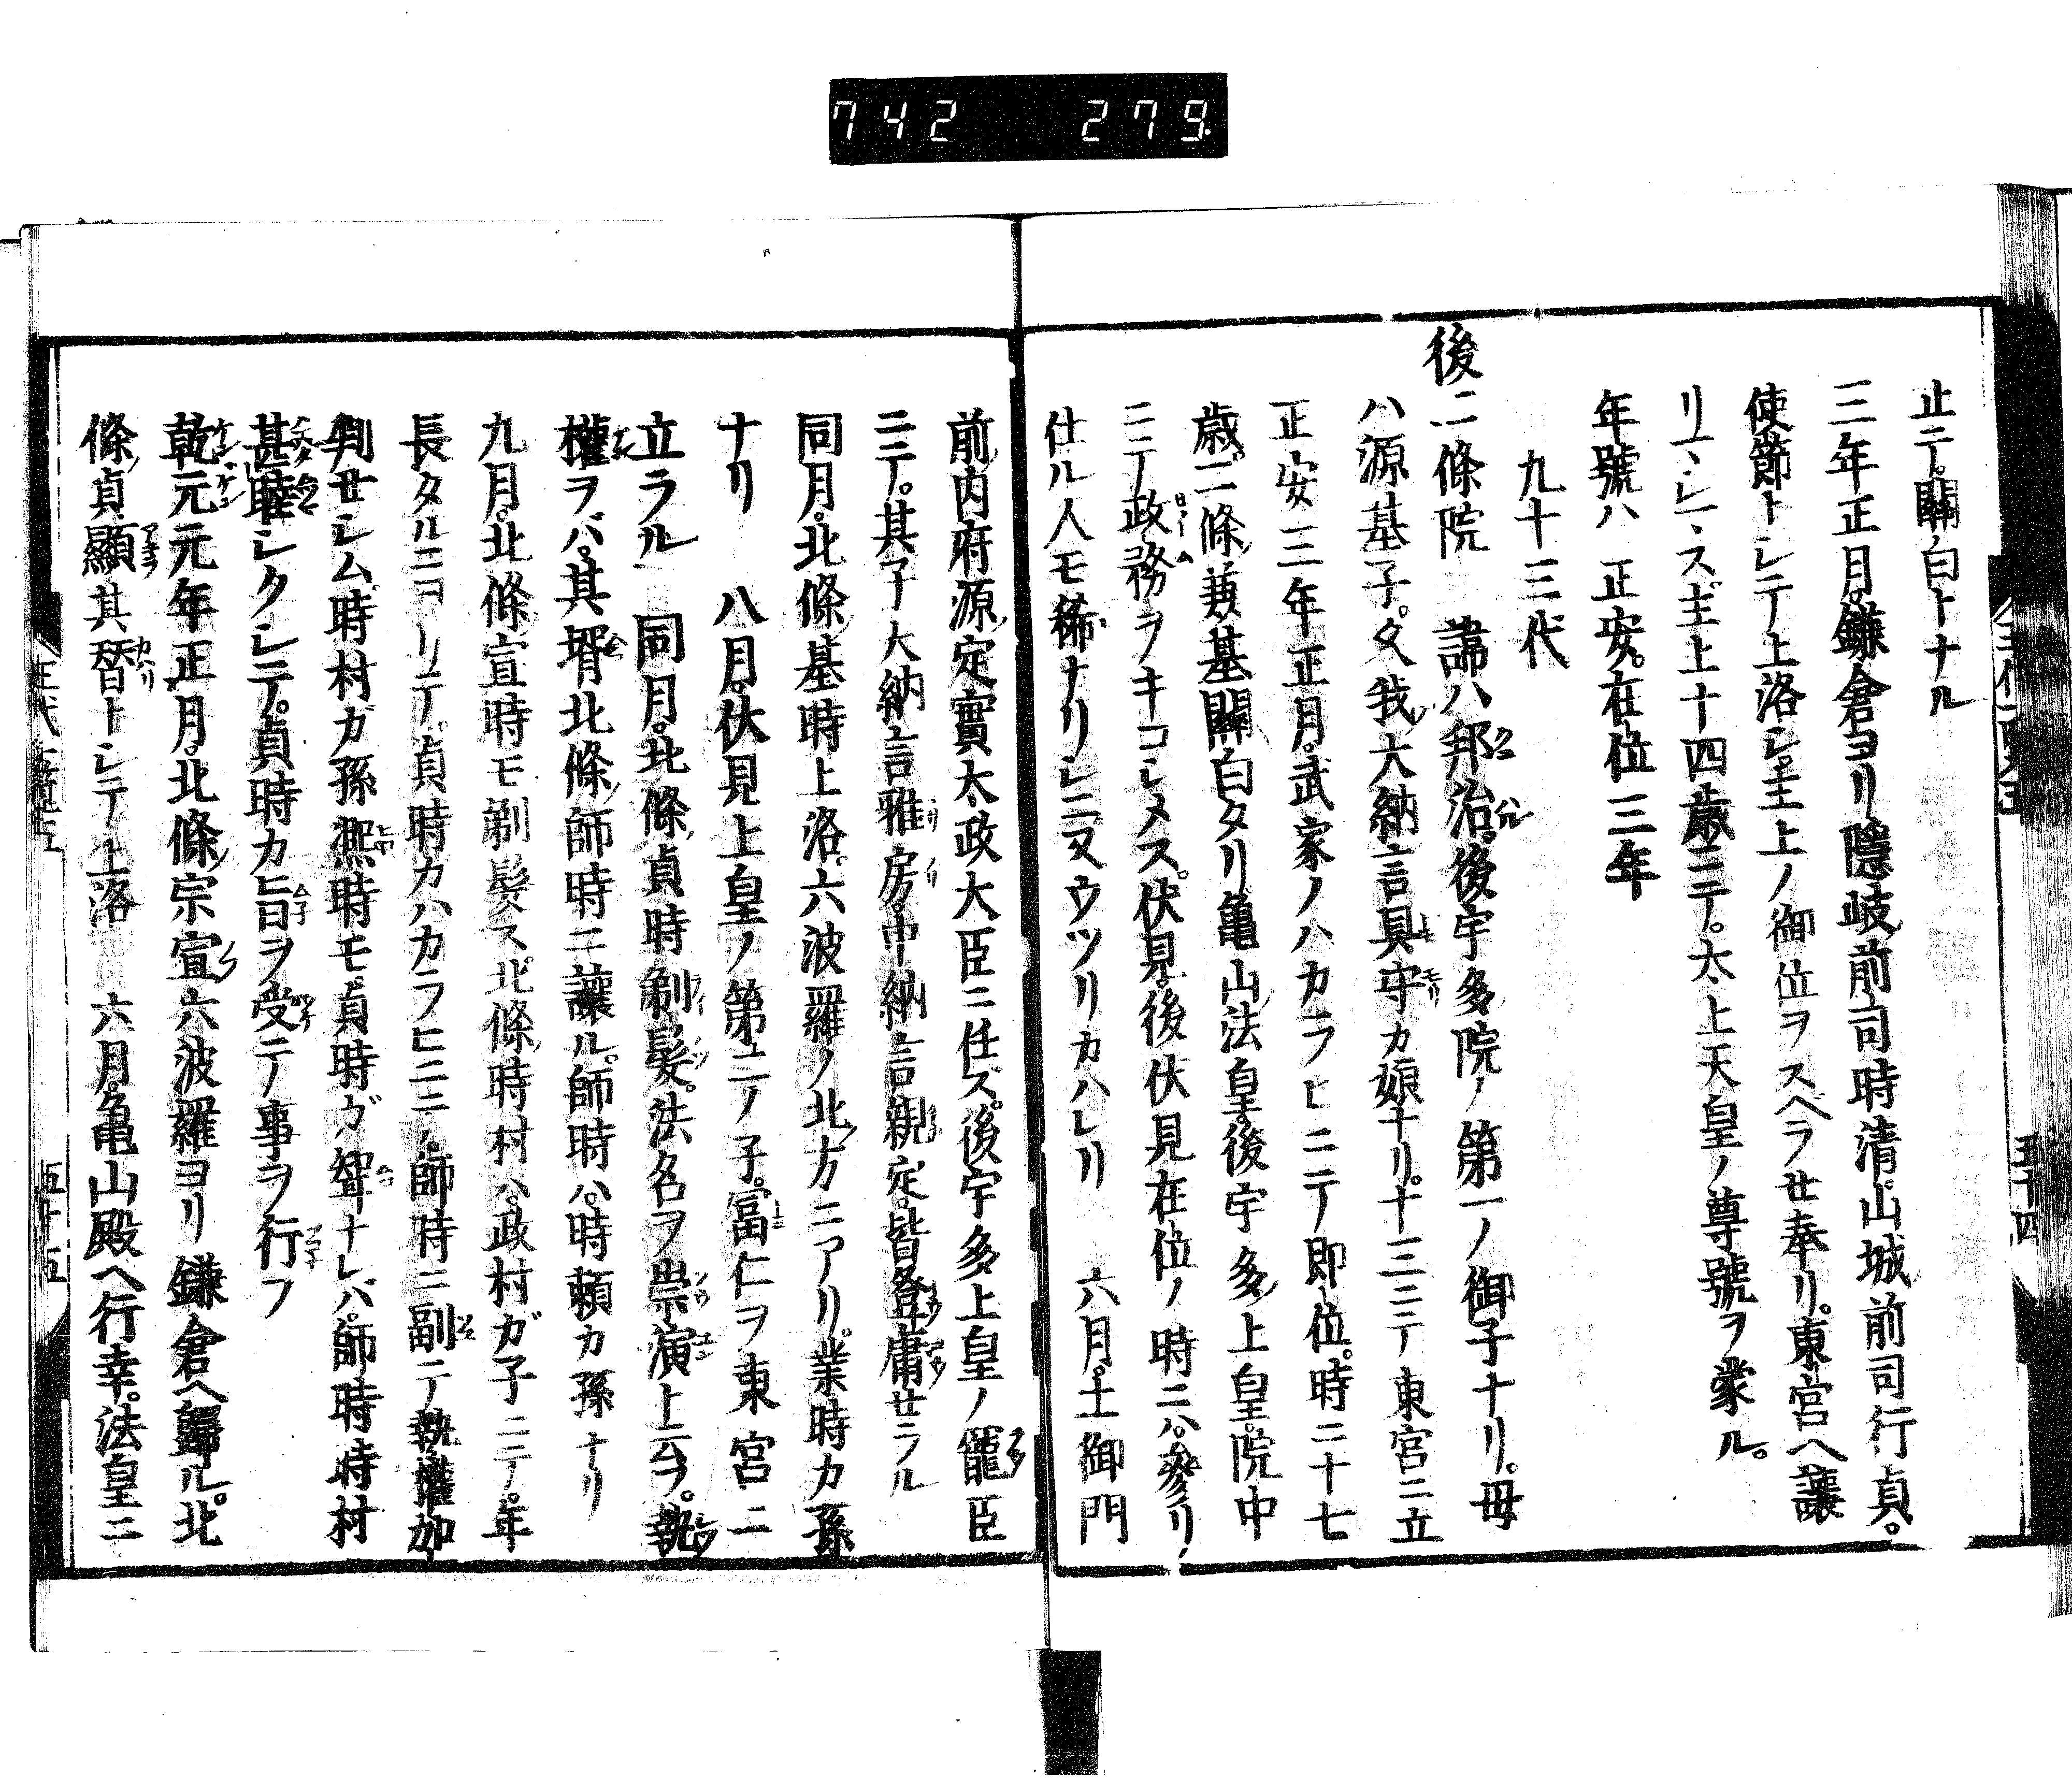 742 279.
止テ。關白トナル
三年正月。鎌倉ヨリ隱岐前司時清。山城前司行貞。
使節トシテ上洛シ。主上ノ御位ヲスベラセ奉リ。東宮ヘ讓
リマシマス。主上十四歳ニテ。太上天皇ノ尊號ヲ蒙ル。
年號ハ 正安。在位三年
九十三代
後二條院 諱ハ邦治。後宇多院ノ第一ノ御子ナリ。母
ハ源基子。久我大納言具守カ娘ナリ。十三ニテ東宮ニ立
正安三年正月。武家ノハカラヒニテ即位。時ニ十七
歳。二條兼基關白タリ龜山法皇。後宇多上皇。院中
ニテ政務ヲキコシメス。伏見。後伏見在位ノ時ニハ。參リ
仕ル人モ稀ナリシニ又ウツリカハレリ 六月。土御門
前内府源定實太政大臣ニ任ズ。後宇多上皇ノ寵臣
ニテ。其子大納言雅房中納言親定。皆登庸セラル
同月。北條基時上洛。六波羅ノ北方ニアリ。業時カ孫
ナリ 八月。伏見上皇ノ第二ノ子。富仁ヲ東宮ニ
立ラル 同月。北條貞時剃髮。法名ヲ崇演ト云フ。執
權ヲバ。其壻北條師時ニ讓ル。師時ハ。時頼カ孫ナリ
九月。北條宣時モ剃髮ス。北條時村ハ。政村ガ子ニテ。年
長タルニヨリテ。貞時カハカラヒニテ。師時ニ副テ執權加
判セシム。時村ガ孫熙時モ。貞時ガ聟ナレバ。師時時村
甚睦シクシテ。貞時カ旨ヲ受テノ事ヲ行フ
乾元元年正月。北條宗宣六波羅ヨリ鎌倉ヘ歸ル。北
條貞顯其替トシテ上洛 六月。龜山殿ヘ行幸。法皇ニ
五十四
五十五